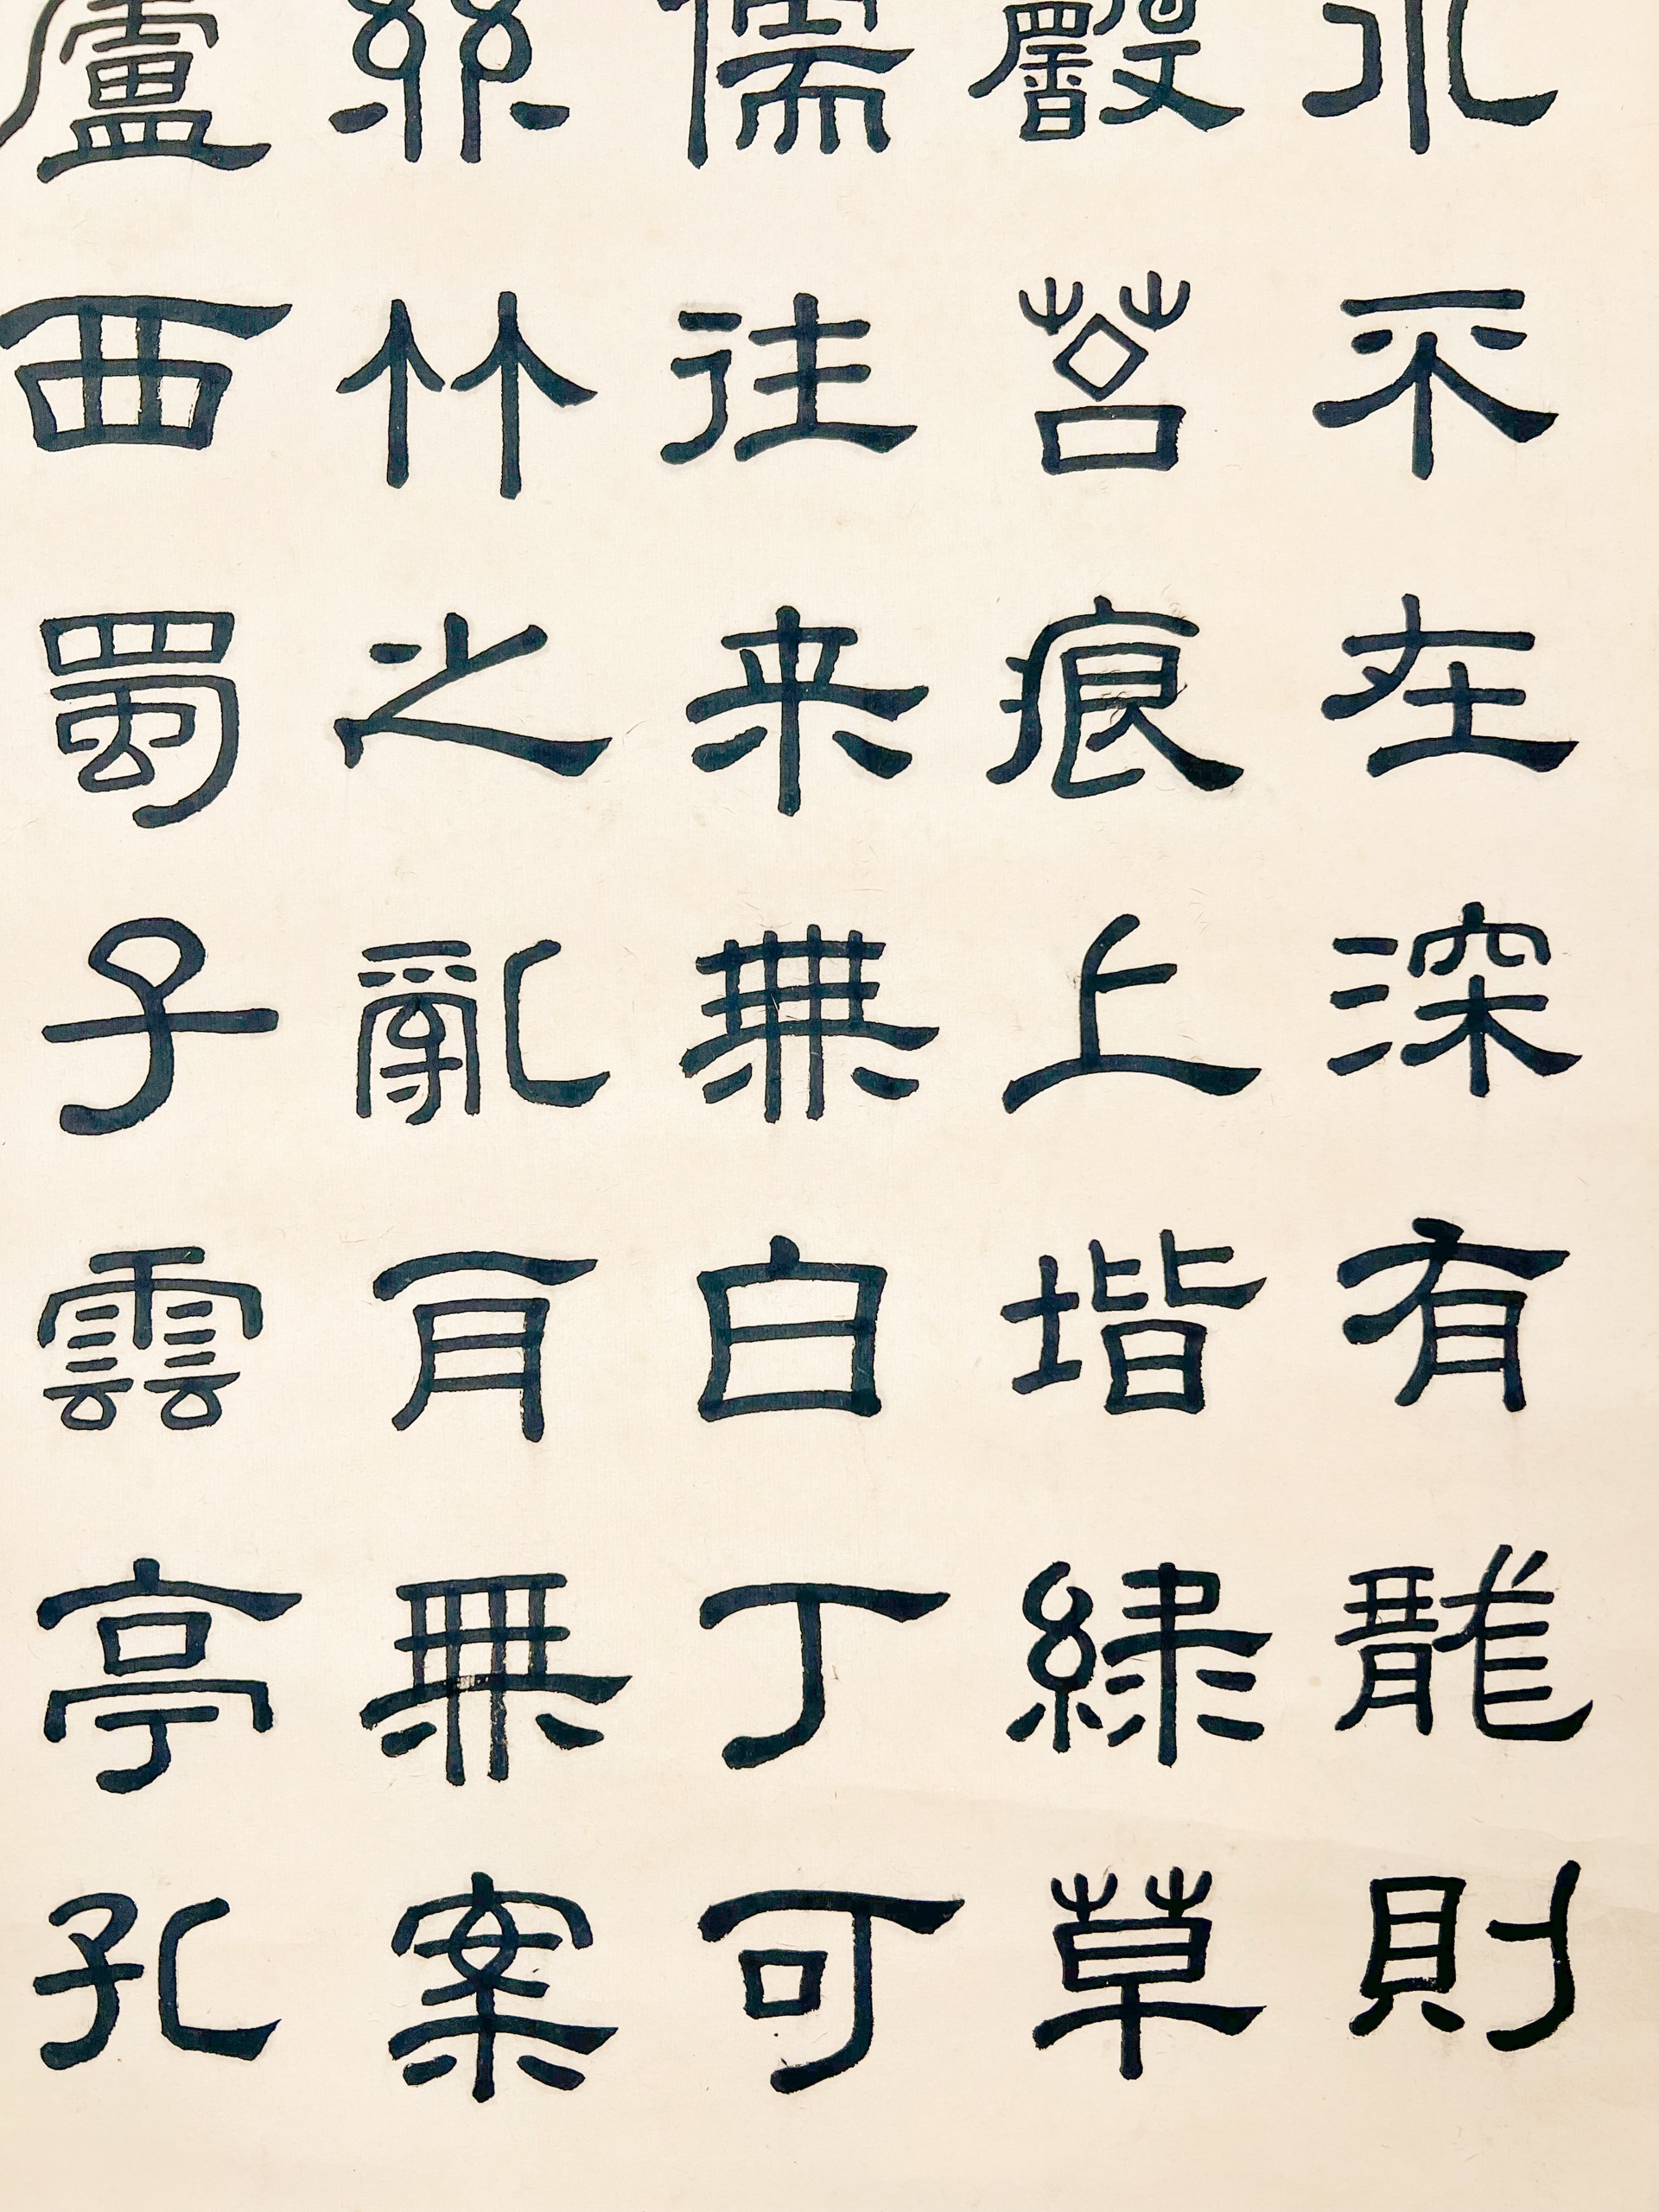 水不在深有龍則
馨苔痕上堦綠草
儒往来無白丁可
絲竹之亂耳無案
廬西蜀子雲亭孔